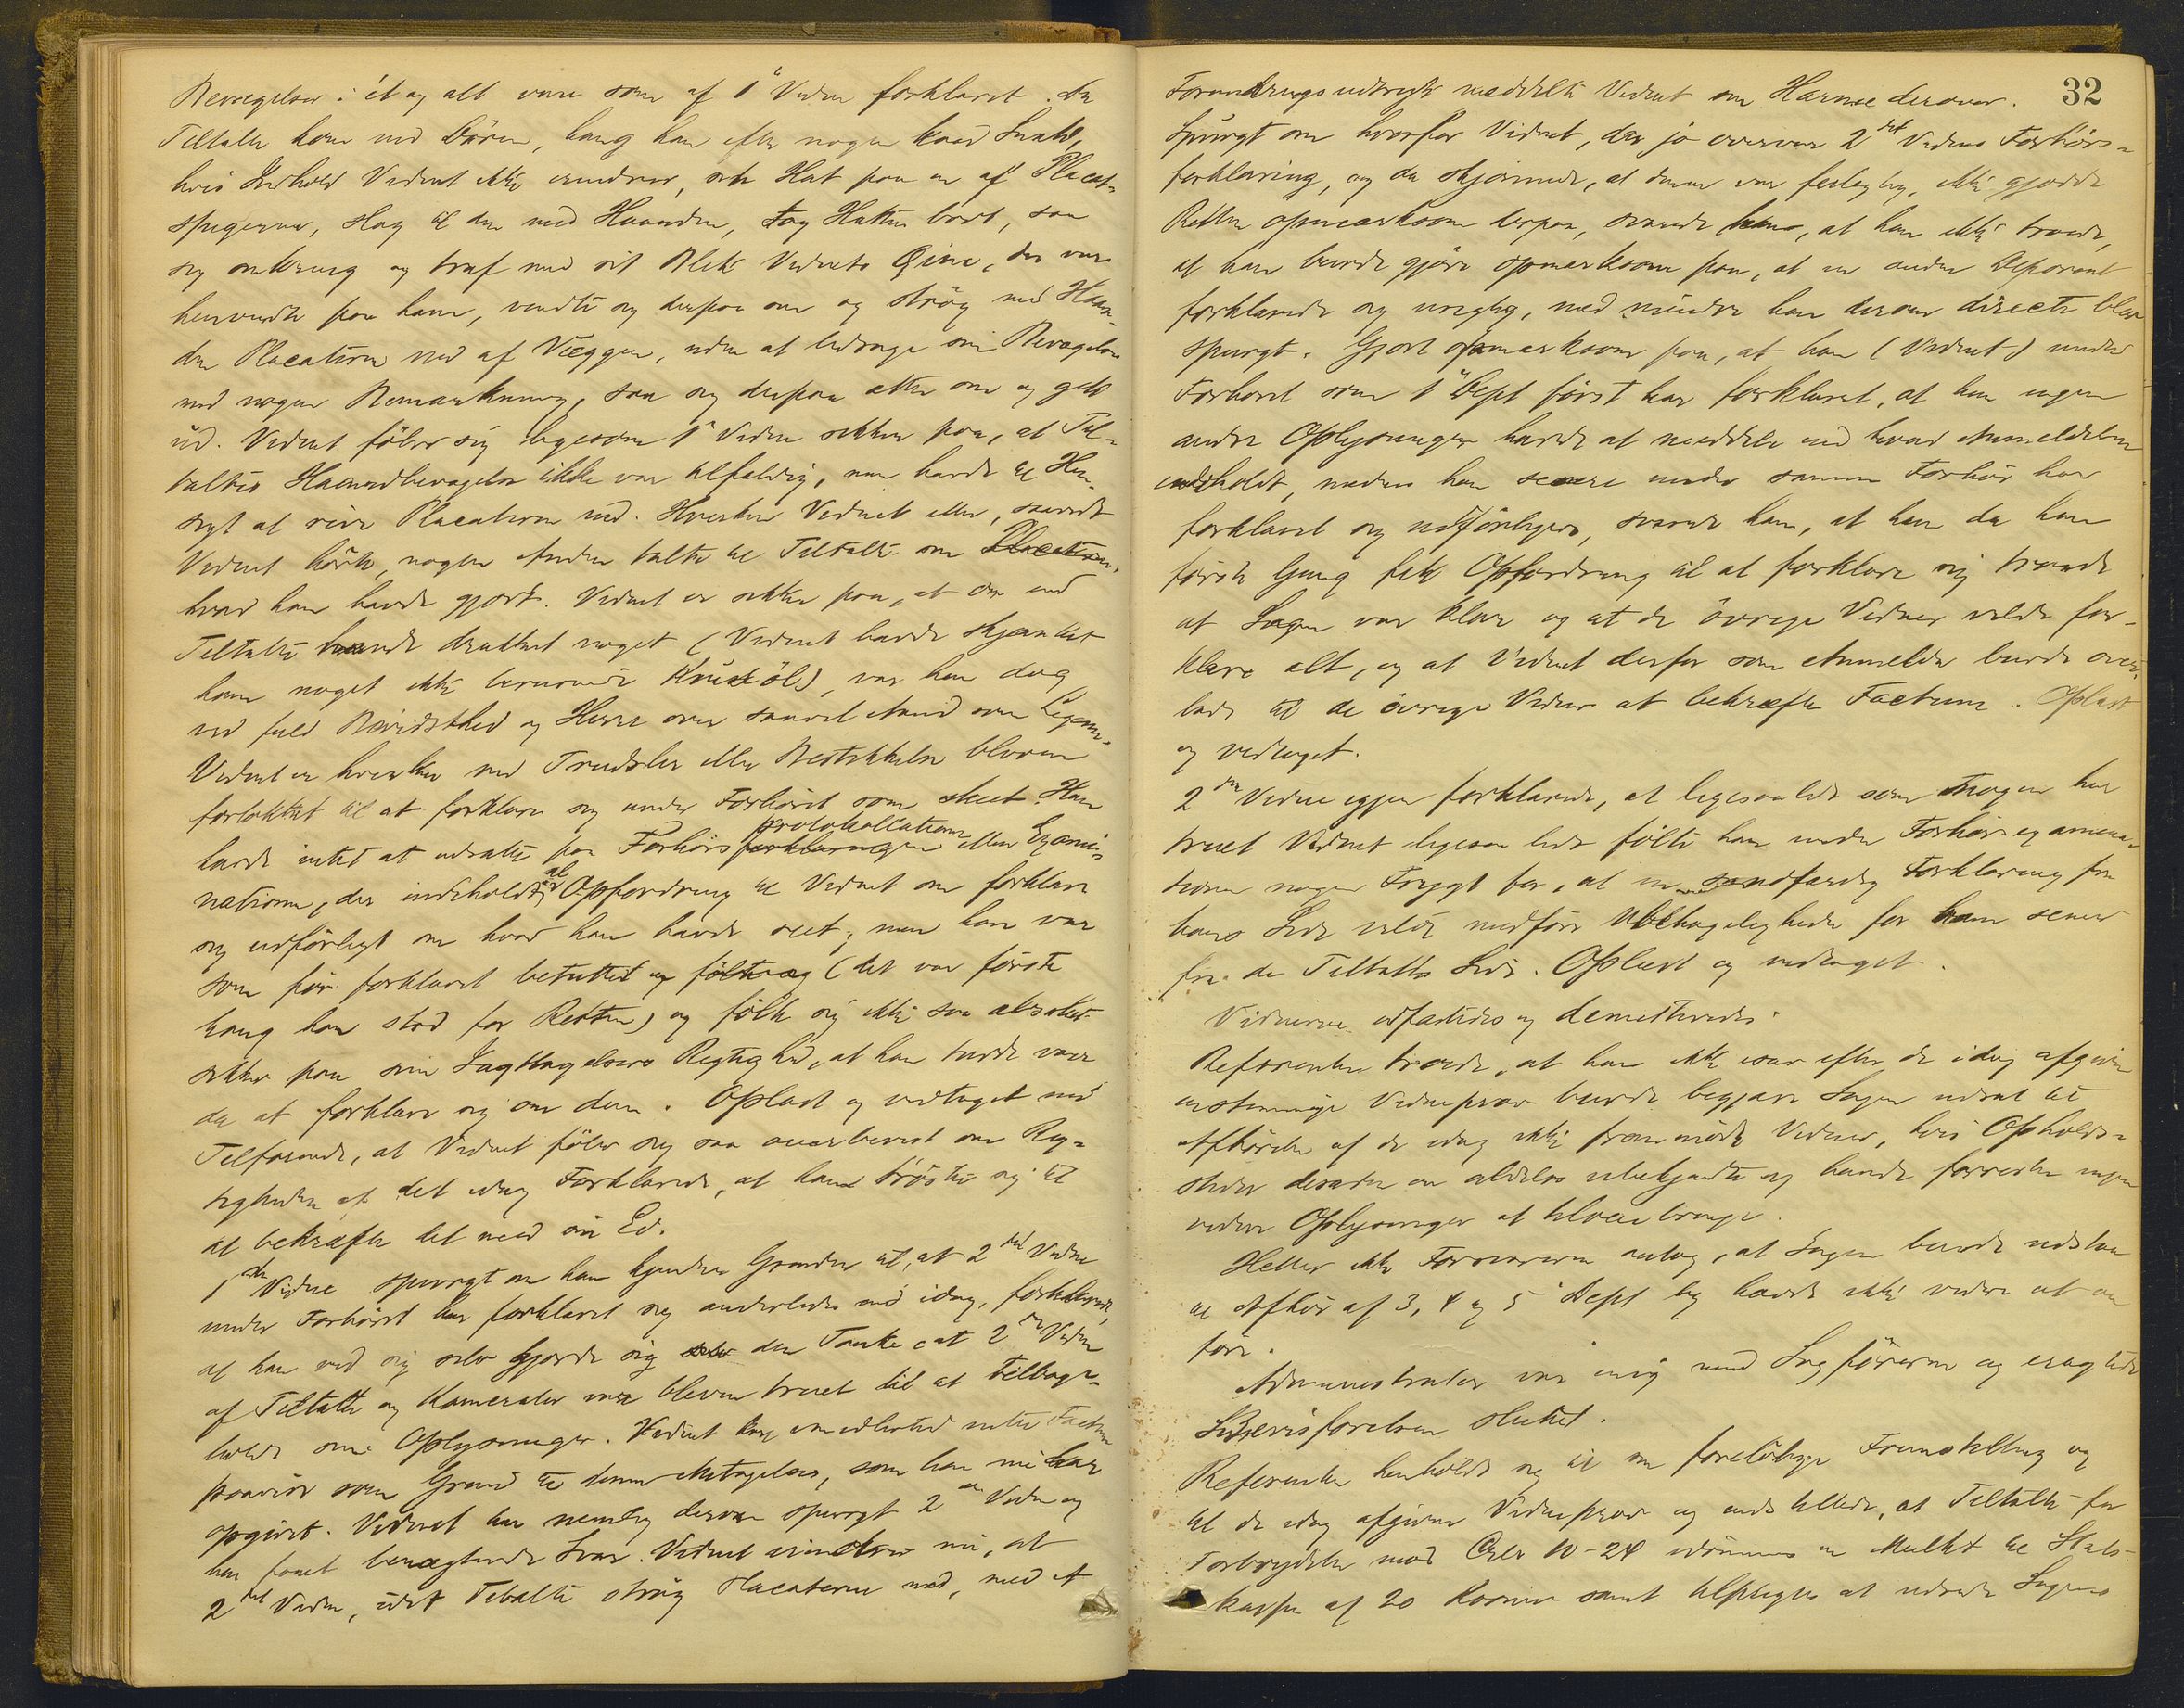 Bevægelser i ét og alt være som af 1ste Vidne forklaret. Da
Tiltalte kom ned Døren, hang han efter nogen kaad Snak,
hvis Indhold Vidnet ikke erindrer, sin Hat paa en af Placat-
spigerne, slog til den med Haanden, tog Hatten bort, saa
sig omkring og traf med sit Blik Vidnets Øine, der vare
henvendte paa ham, vendte sig derpaa om og strøg med Haan-
den Placaterne ned af Væggen, uden at ledsage sin Bevægelse
med nogen Bemærkning, saa sig derpaa atter om og gik
ud. Vidnet føler sig ligesom 1ste Vidne sikker paa, at Til-
taltes Haandbevægelse ikke var tilfældig, men havde til Hen-
sigt at rive Placaterne ned. Hverken Vidnet eller, saavidt
Vidnet hørte, nogen Anden talte til Tiltalte om Placaterne,
hvad han havde gjort. Vidnet er sikker paa, at om end
Tiltalte havde drukket noget (Vidnet havde skjænket
ham noget ikke berusende Krusøl), var han dog
ved fuld Bevidsthed og Herre over saavel Aand som Legeme.
Vidnet er hverken ved Trudsler eller Bestikkelse bleven
forlokket til at forklare sig under Forhøret som skeet. Han
havde intet at udsætte paa Forhørsforklaringen protokollationen eller Exami-
nationen, der indeholdt al Opfordring til Vidnet om forklare
sig udførligt om hvad han havde seet; men han var
som før forklaret betuttet og (det var første
Gang han stod for Retten) og følte sig ikke saa absolut
sikker paa sin Iagttagelsers Rigtighed, at han turde være
da at forklare sig om dem. Oplæst og vedtaget med
Tilføiende, at Vidnet føler sig saa overbevist om Rig-
tigheden af det idag Forklarede, at han trøster sig til
at bekræfte det med sin Ed.
1ste Vidne spurgt om han kjender Grunden til, at 2det Vidne
under Forhøret har forklaret sig anderledes end idag, forklarede,
at han ved sig selv gjorde sig selv den Tanke at 2det Vidne
af Tiltalte og Kamerater var bleven truet til at tilbage-
holde sine Oplysninger. Vidnet kan imidlertid intet Factum
paavise som Grund til denne Antagelse, som han nu har
opgivet. Vidnet har nemlig derom spurgt 2det Vidne og
har faaet benægtende Svar. Vidnet erindrer nu, at
2det Vidne, idet Tiltalte strøg Placaterne ned, med et
32
Forundringsudtryk meddelte Vidnet sin Harme derover.
Spurgt om hvorfor Vidnet, der jo overvar 2det Vidnes Forhørs-
forklaring, og da skjønnede, at denne var feilagtig, ikke gjorde
Retten opmærksom derpaa, svarede han, at han ikke troede,
at han burde gjøre opmærksom paa, at en anden Deponent
forklarede sig urigtig, med mindre han derom directe blev
spurgt. Gjort opmærksom paa, at han (Vidnet) under
Forhøret som 1ste Dept først har forklaret, at han ingen
andre Oplysninger havde at meddele end hvad Anmeldelsen
indeholdt, medens han senere under samme Forhør har
forklaret sig udførligere, svarede han, at han da han
første Gang fik Opfordring til at forklare sig troede
at Sagen var klar og at de øvrige Vidner vilde for-
klare alt, og at Vidnet derfor som Anmelder burde over-
lade til de øvrige Vidner at bekræfte Factum. Oplæst
og vedtaget.
2det Vidne igjen forklarede, at ligesaalidt som Nogen har
truet Vidnet ligesaa lidt følte han under Forhørsexamina-
tionen nogen Frygt for, at en sandfærdig Forklaring fra
hans Side vilde medføre Ubehageligheder for ham senere
fra de Tiltaltes Side. Oplæst og vedtaget.
Vidnerne edfæstedes og demitteredes.
Referenten troede, at han ikke især efter de idag afgivne
enstemmige Vidneprov burde begjære Sagen udsat til
Afhørelse af de idag ikke fremmødte Vidner, hvis Opholds-
steder desuden er aldeles ubekjendte og havde forresten ingen
videre Oplysninger at tilveiebringe.
Heller ikke Forsvareren antog, at Sagen burde udstaa
til Afhør af 3, 4 og 5 Dept og havde ikke videre at an
føre.
Administrator var enig med Sagførerne og eragtede
Bevisførelsen sluttet.
Referenten henholdt sig til sin foreløbige Fremstilling og
til de idag afgivne Vidneprov og indstillede, at Tiltalte for
Forbrydelse mod Crlv 10-24 idømmes en Mulkt til Stats-
kassen af 20 Kroner samt tilpligtes at udrede Sagens